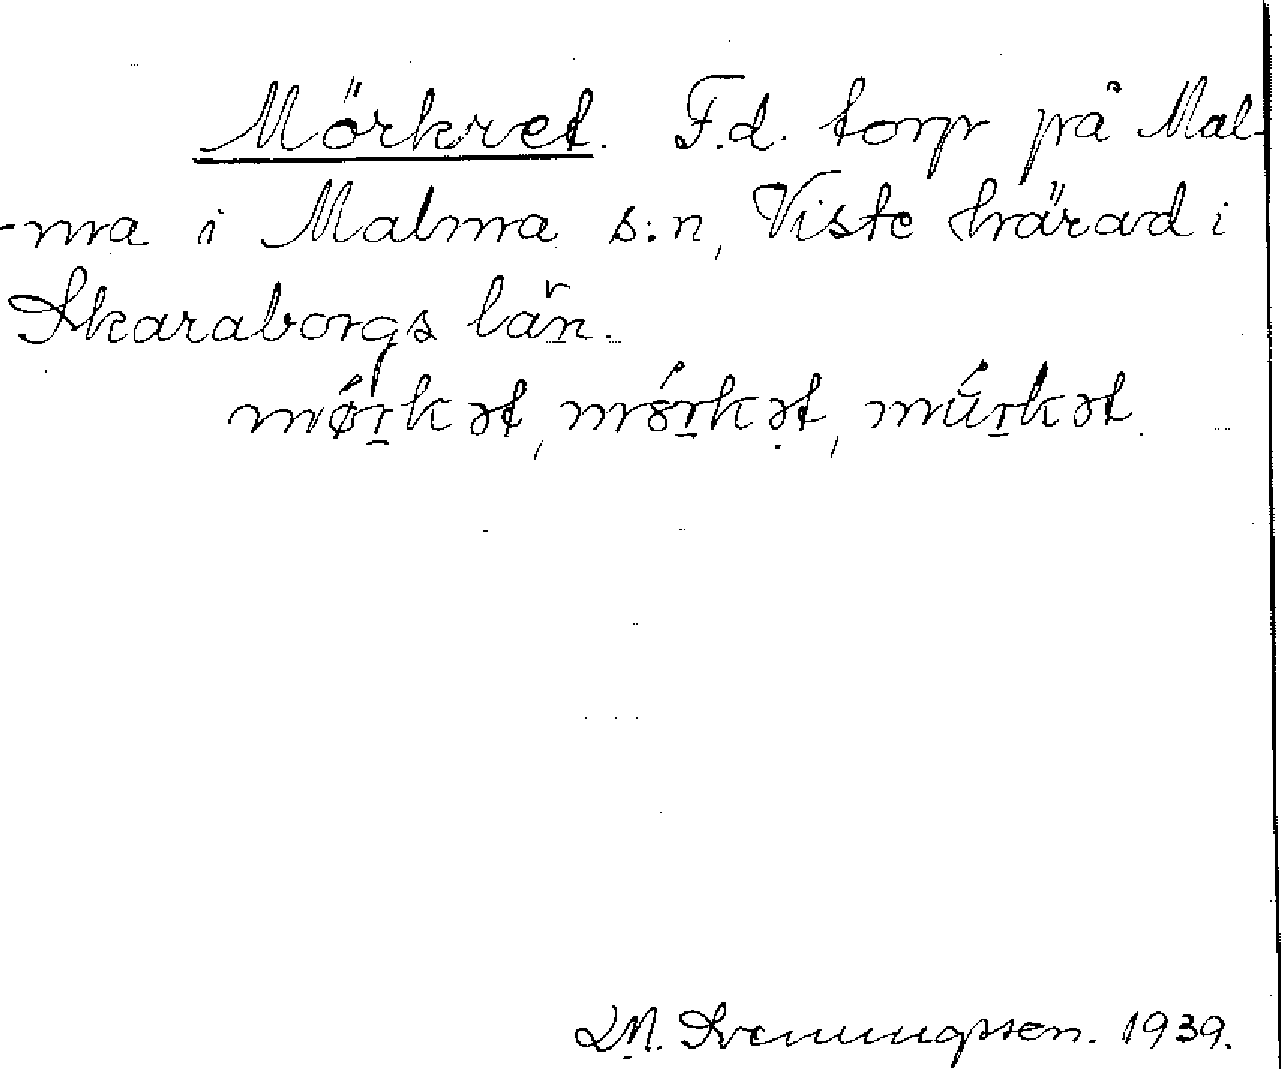 Mörkret. F.d. torp på Mal-
-ma i Malma s:n, Viste härad i
Skaraborgs län.
mǿr̲kət, mớr̲kət, múr̲kət.
Svenungsson. 1939.